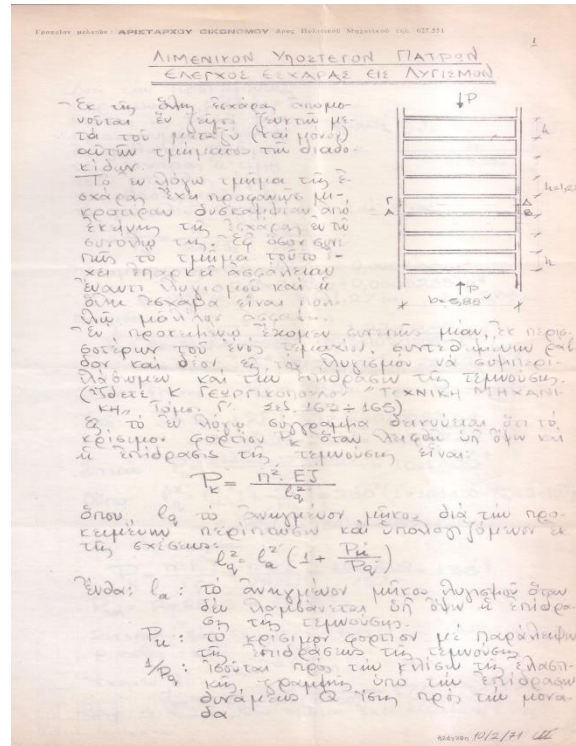 Γραφείον μελετών: ΑΡΙΣΤΑΡΧΟΥ ΟΙΚΟΝΟΜΟΥ Δρος Πολιτικού Μηχανικού τηλ. 627.551
1
ΛΙΜΕΝΙΚΟΝ ΥΠΟΣΤΕΓΟΝ ΠΑΤΡΩΝ
ΕΛΕΓΧΟΣ ΕΣΧΑΡΑΣ ΕΙΣ ΛΥΓΙΣΜΟΝ
Ἐκ τῆς ὅλης ἐσχάρας ἀπομο-
νοῦται ἓν ζεῦγος ζευκτῶν με-
τά τοῦ μεταξύ (καί μόνον)
αὐτῶν τμήματος τῶν διαδο-
κίδων.
Τό ἐν λόγῳ τμῆμα τῆς ἐ-
σχάρας ἔχει προφανῶς μι-
κροτέραν δυσκαμψίαν ἀπό
ἐκείνης τῆς ἐσχάρας ἐν τῷ
συνόλῳ της. Ἐφ' ὅσον συνε-
πῶς τό τμῆμα τοῦτο ἔ-
χει ἐπαρκῆ ἀσφάλειαν
ἔναντι λυγισμοῦ καί ἡ
ὅλη ἐσχάρα εἶναι πολ-
λῷ μᾶλλον ἀσφαλής.
P
h
Γ
Α
Δ
Β
h
P
b=5,80
Ἐν προκειμένῳ ἔχομεν συνεπῶς μίαν, ἐκ περισ-
σοτέρων τοῦ ἑνός τεμαχίων, συντεθειμένην ράβ-
δον καί δέον εἰς τόν λυγισμόν νά συμπερι-
λάβωμεν καί τήν ἐπίδρασιν τῆς τεμνούσης.
(Ἴδετε Κ. ΓΕΩΡΓΙΚΟΠΟΥΛΟΥ "ΤΕΧΝΙΚΗ ΜΗΧΑΝΙ-
ΚΗ" Τόμος Γ' Σελ. 162÷165)
Εἰς τό ἐν λόγῳ σύγγραμμα δεικνύεται ὅτι τό
κρίσιμον φορτίον Pκ ὅταν ληφθῇ ὑπ' ὄψιν καί
ἡ ἐπίδρασις τῆς τεμνούσης εἶναι:
Pκ = π². EJ / lq²
ὅπου, lq τό ἀνηγμένον μῆκος διά τήν προ-
κειμένην περίπτωσιν καί ὑπολογιζόμενον ἐκ
τῆς σχέσεως:
lq² = lα² (1 + Pκ / Pq)
ἔνθα: lα : τό ἀνηγμένον μῆκος λυγισμοῦ ὅταν
δέν λαμβάνεται ὑπ' ὄψιν ἡ ἐπίδρα-
σις τῆς τεμνούσης.
Pκ : τό κρίσιμον φορτίον μέ παράλειψιν
τῆς ἐπιδράσεως τῆς τεμνούσης
1/Pq : ἰσοῦται πρός τήν κλίσιν τῆς ἐλαστι-
κῆς γραμμῆς ὑπό τήν ἐπίδρασιν
δυνάμεως Q ἴσης πρός τήν μονά-
δα
10/2/71